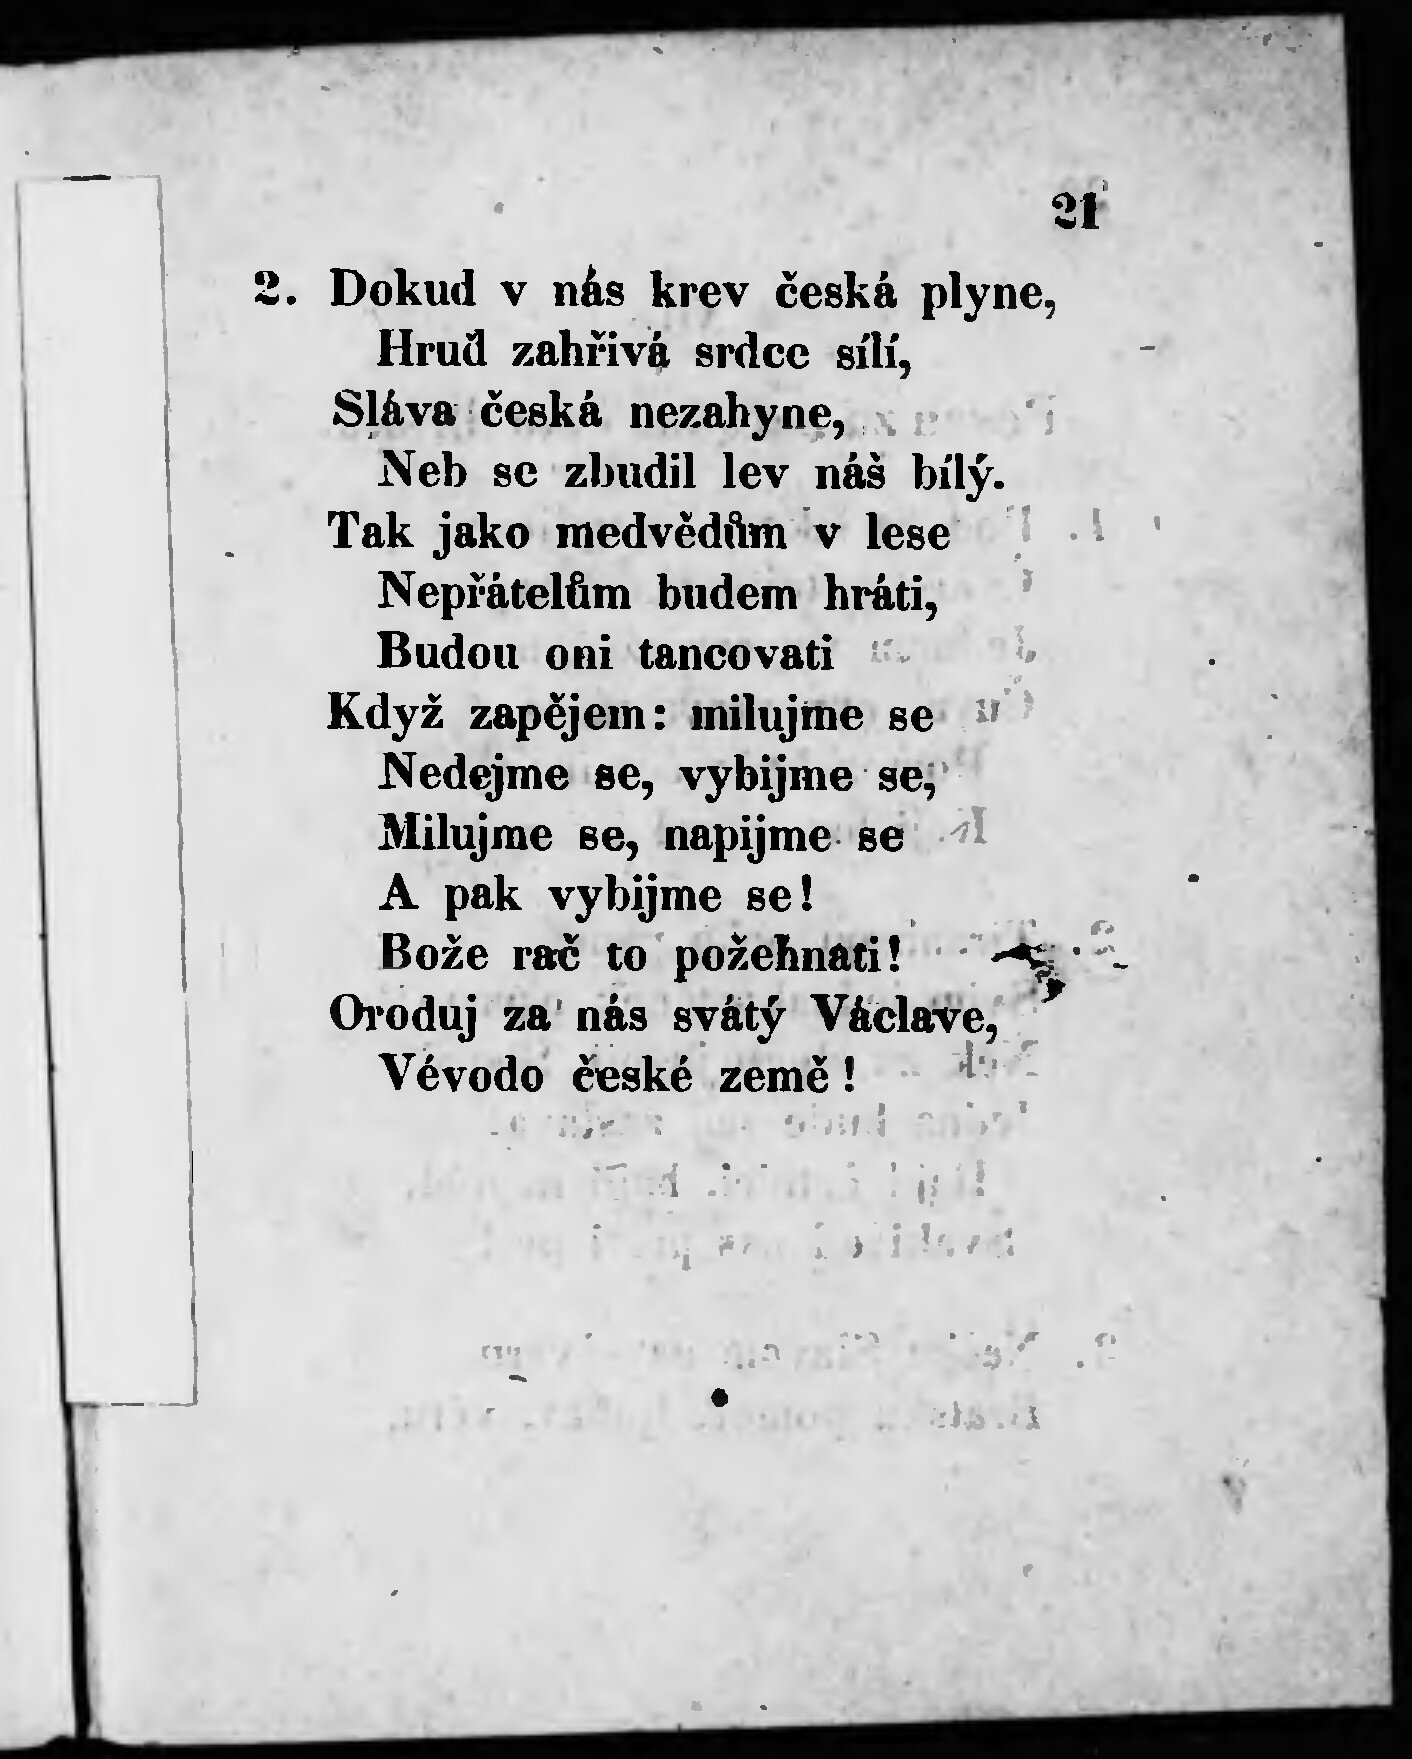 21
2. Dokud v nás krev česká plyne,
Hruď zahřivá srdce sílí,
Sláva česká nezahyne,
Neb se zbudil lev náš bílý.
Tak jako medvědům v lese
Nepřátelům budem hráti,
Budou oni tancovati
Když zapějem: milujme se
Nedejme se, vybijme se,
Milujme se, napijme se
A pak vybijme se!
Bože rač to požehnati!
Oroduj za nás svátý Václave,
Vévodo české země!